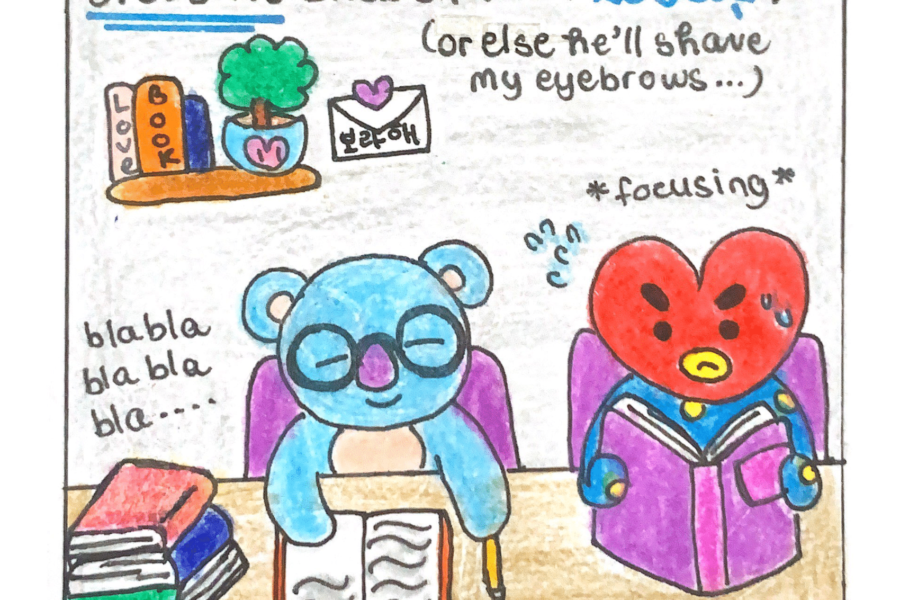 (or else he'll shave
my eyebrows...)
Love
BOOK
보라해
*focusing*
blabla
bla bla
bla....